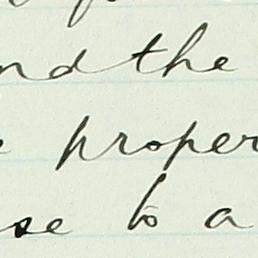 nd the
proper
se to a